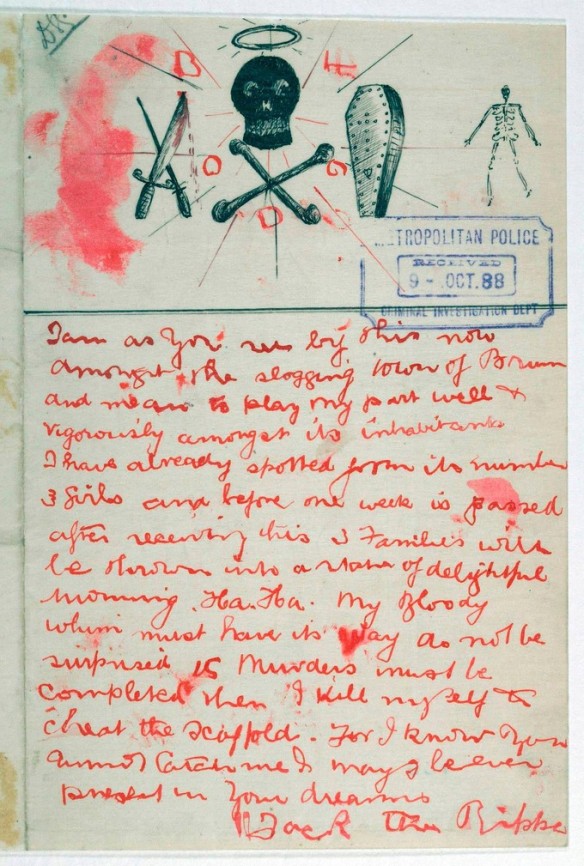 B H
O G
D
METROPOLITAN POLICE
RECEIVED
9 - OCT. 88
CRIMINAL INVESTIGATION DEPT
I am as you see by this now
amongst the slogging town of Brum
and mean to play my part well &
vigorously amongst its inhabitants
I have already spotted from its number
3 Girls and before one week is passed
after receiving this 3 Families will
be thrown into a state of delightful
mourning. Ha. Ha. My Bloody
whim must have its way do not be
surprised 15 Murders must be
completed then I kill myself to
cheat the scaffold. For I know you
cannot catch me & may I be ever
present in your dreams
Jack the Ripper